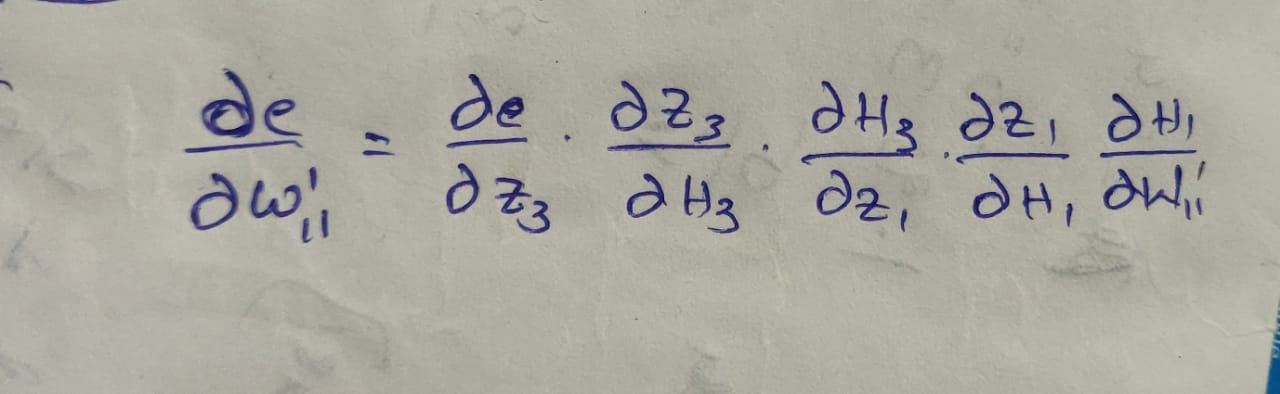 ∂e/∂w¹₁₁ = ∂e/∂z₃ · ∂z₃/∂H₃ · ∂H₃/∂z₁ · ∂z₁/∂H₁ ∂H₁/∂W¹₁₁